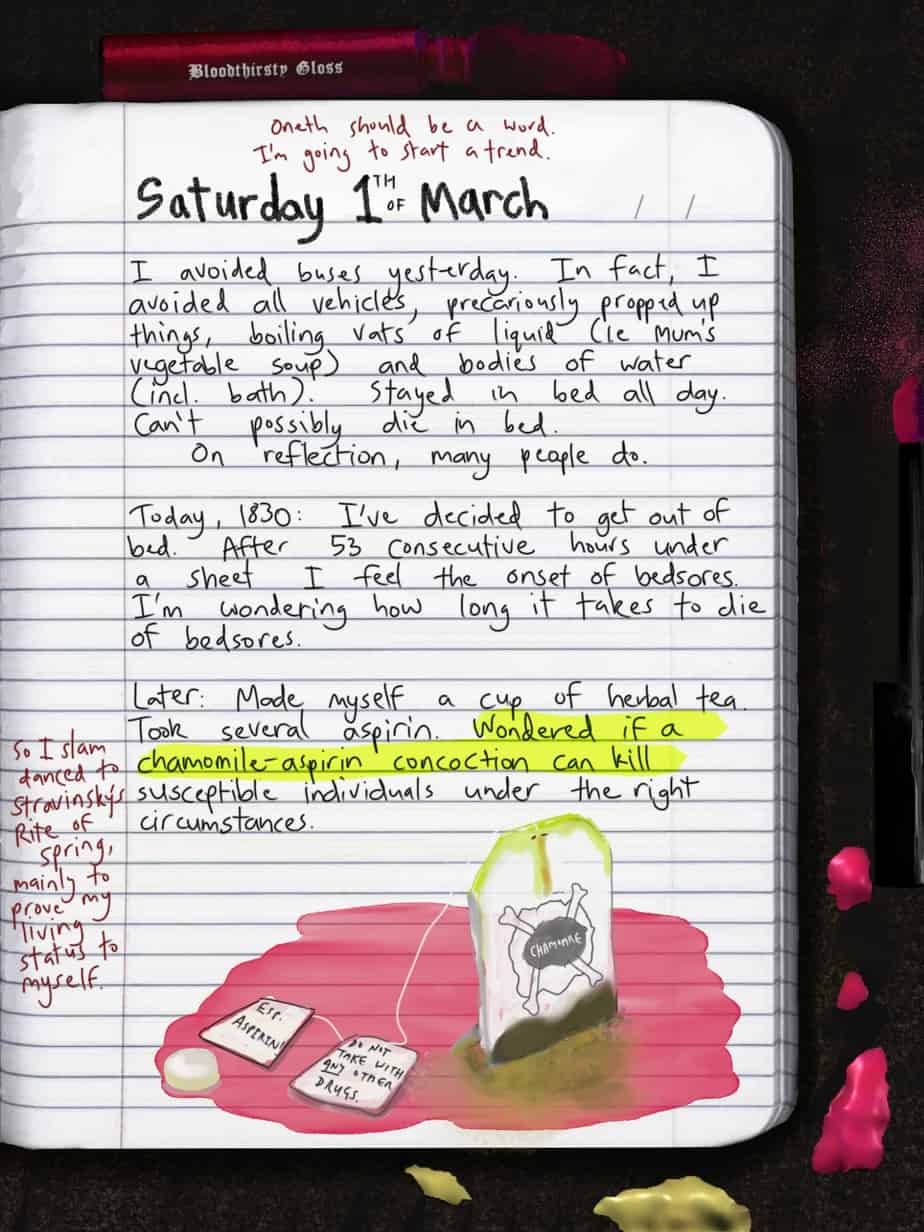 Bloodthirsty Gloss
Oneth should be a word.
I'm going to start a trend.
Saturday 1TH OF March
I avoided buses yesterday. In fact, I
avoided all vehicles, precariously propped up
things, boiling vats of liquid (ie Mum's
vegetable soup) and bodies of water
(incl. bath). Stayed in bed all day.
Can't possibly die in bed.
On reflection, many people do.
Today, 1830: I've decided to get out of
bed. After 53 consecutive hours under
a sheet I feel the onset of bedsores.
I'm wondering how long it takes to die
of bedsores.
Later: Made myself a cup of herbal tea.
Took several aspirin. Wondered if a
chamomile-aspirin concoction can kill
susceptible individuals under the right
circumstances.
So I slam
danced to
Stravinsky's
Rite of
Spring,
mainly to
prove my
living
status to
myself.
ESP.
ASPIRIN!
DO NOT
TAKE WITH
ANY OTHER
DRUGS.